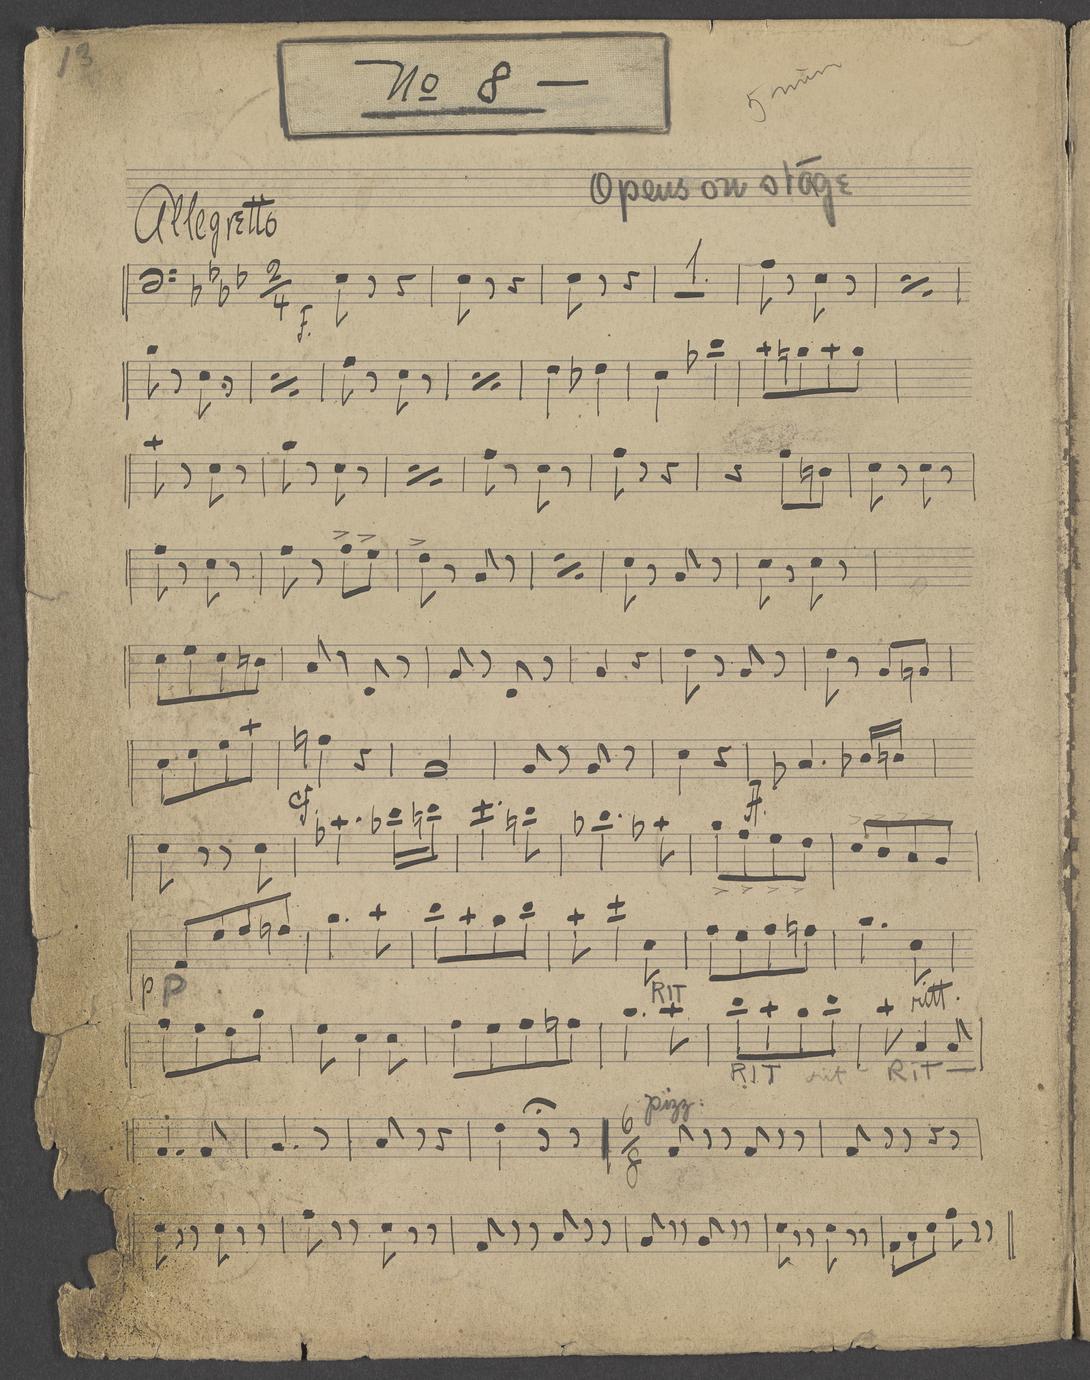 13
No 8 —
5 min
Opens on stage
Allegretto
2/4
f.
1.
cf
f.
p P
RIT
ritt.
RIT rit RIT —
pizz:
6/8